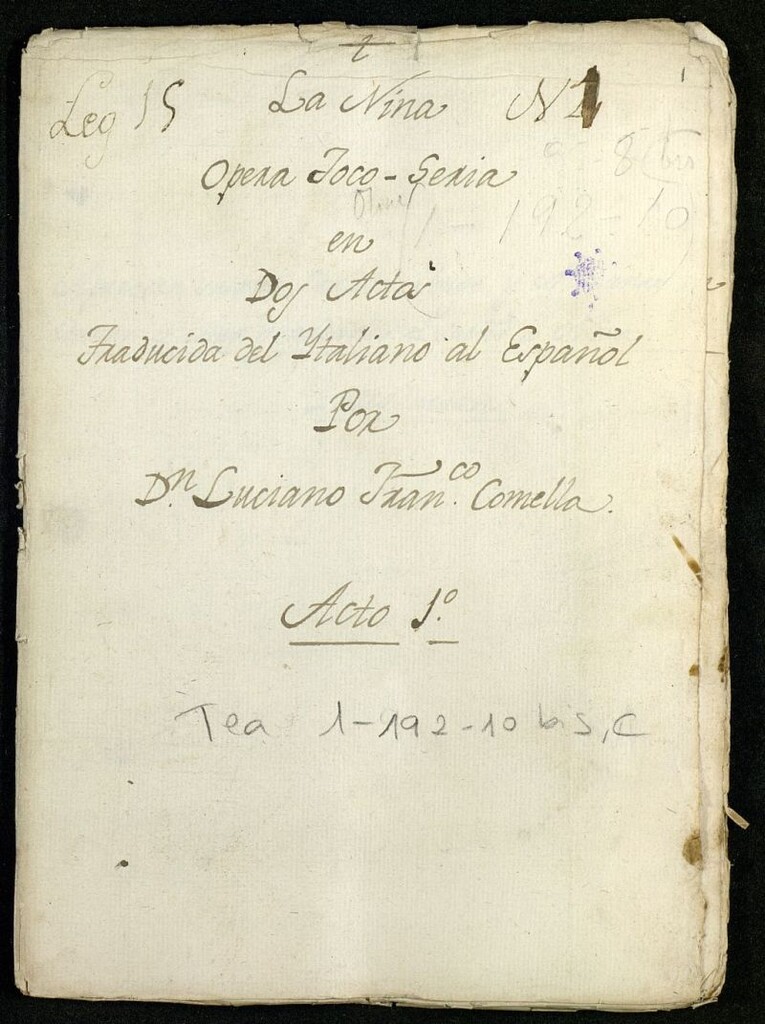 Leg 15 La Nina N 1
1
Opera Joco-Seria
8
1-192-10
en
Dos Actos
Traducida del Ytaliano al Español
Por
Dn. Luciano Franco. Comella.
Acto 1º.
Tea 1-192-10 bis, C